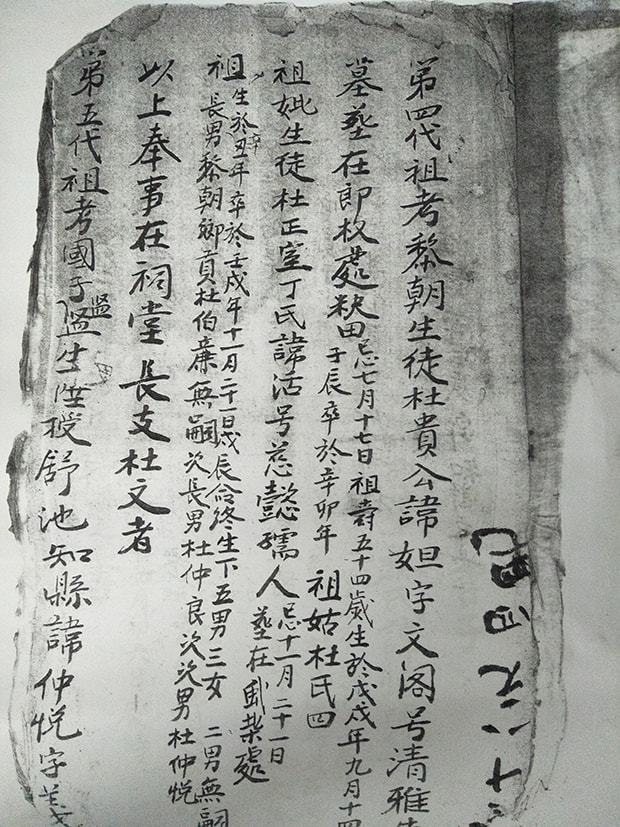 第四代祖考黎朝生徒杜貴公諱妲字文阁号清雅生
墓𦵏在即杈處秋田
忌七月十七日祖壽五十四歲生於戊戌年九月十四
于辰卒於辛卯年
祖姑杜氏四
祖妣生徒杜正室丁氏諱活号慈懿孺人
忌十一月二十一日
𦵏在處
祖生於辛丑年卒於壬戌年十一月二十一日戌辰命終生下五男三女 二男無嗣
長男黎朝鄉貢杜伯㢘無嗣次長男杜仲良次次男杜仲悦
以上奉事在祠堂長支杜文者
第五代祖考國子监監生陞授舒池知縣諱仲悦字